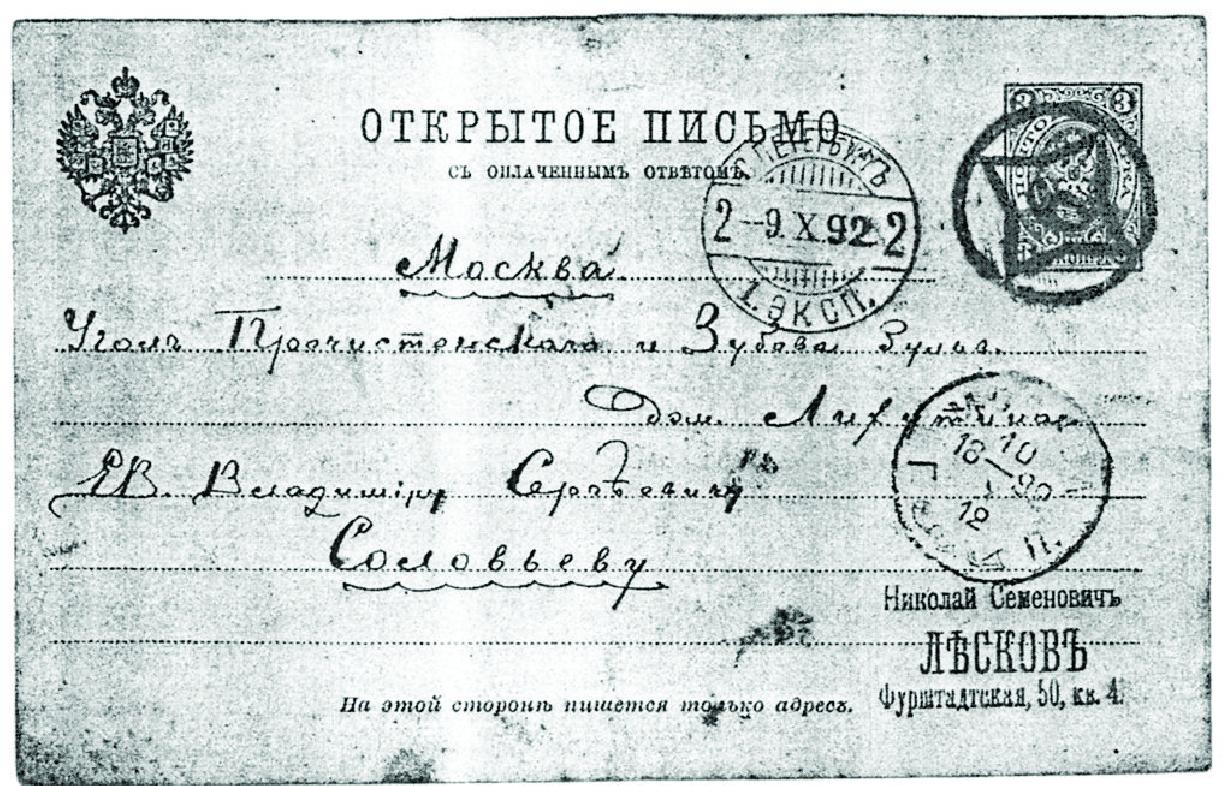 ОТКРЫТОЕ ПИСЬМО
съ оплаченнымъ отвѣтомъ.
3 3
2 9.X.92 2
1. ЭКСП.
Москва.
Уголъ Пречистенскаго и Зубова
дом.
ЕВ. Владиміру Сергѣевичу
Соловьеву
10
12
Николай Семеновичъ
ЛѢСКОВЪ
Фурштадтская, 50, кв. 4.
На этой сторонѣ пишется только адресъ.